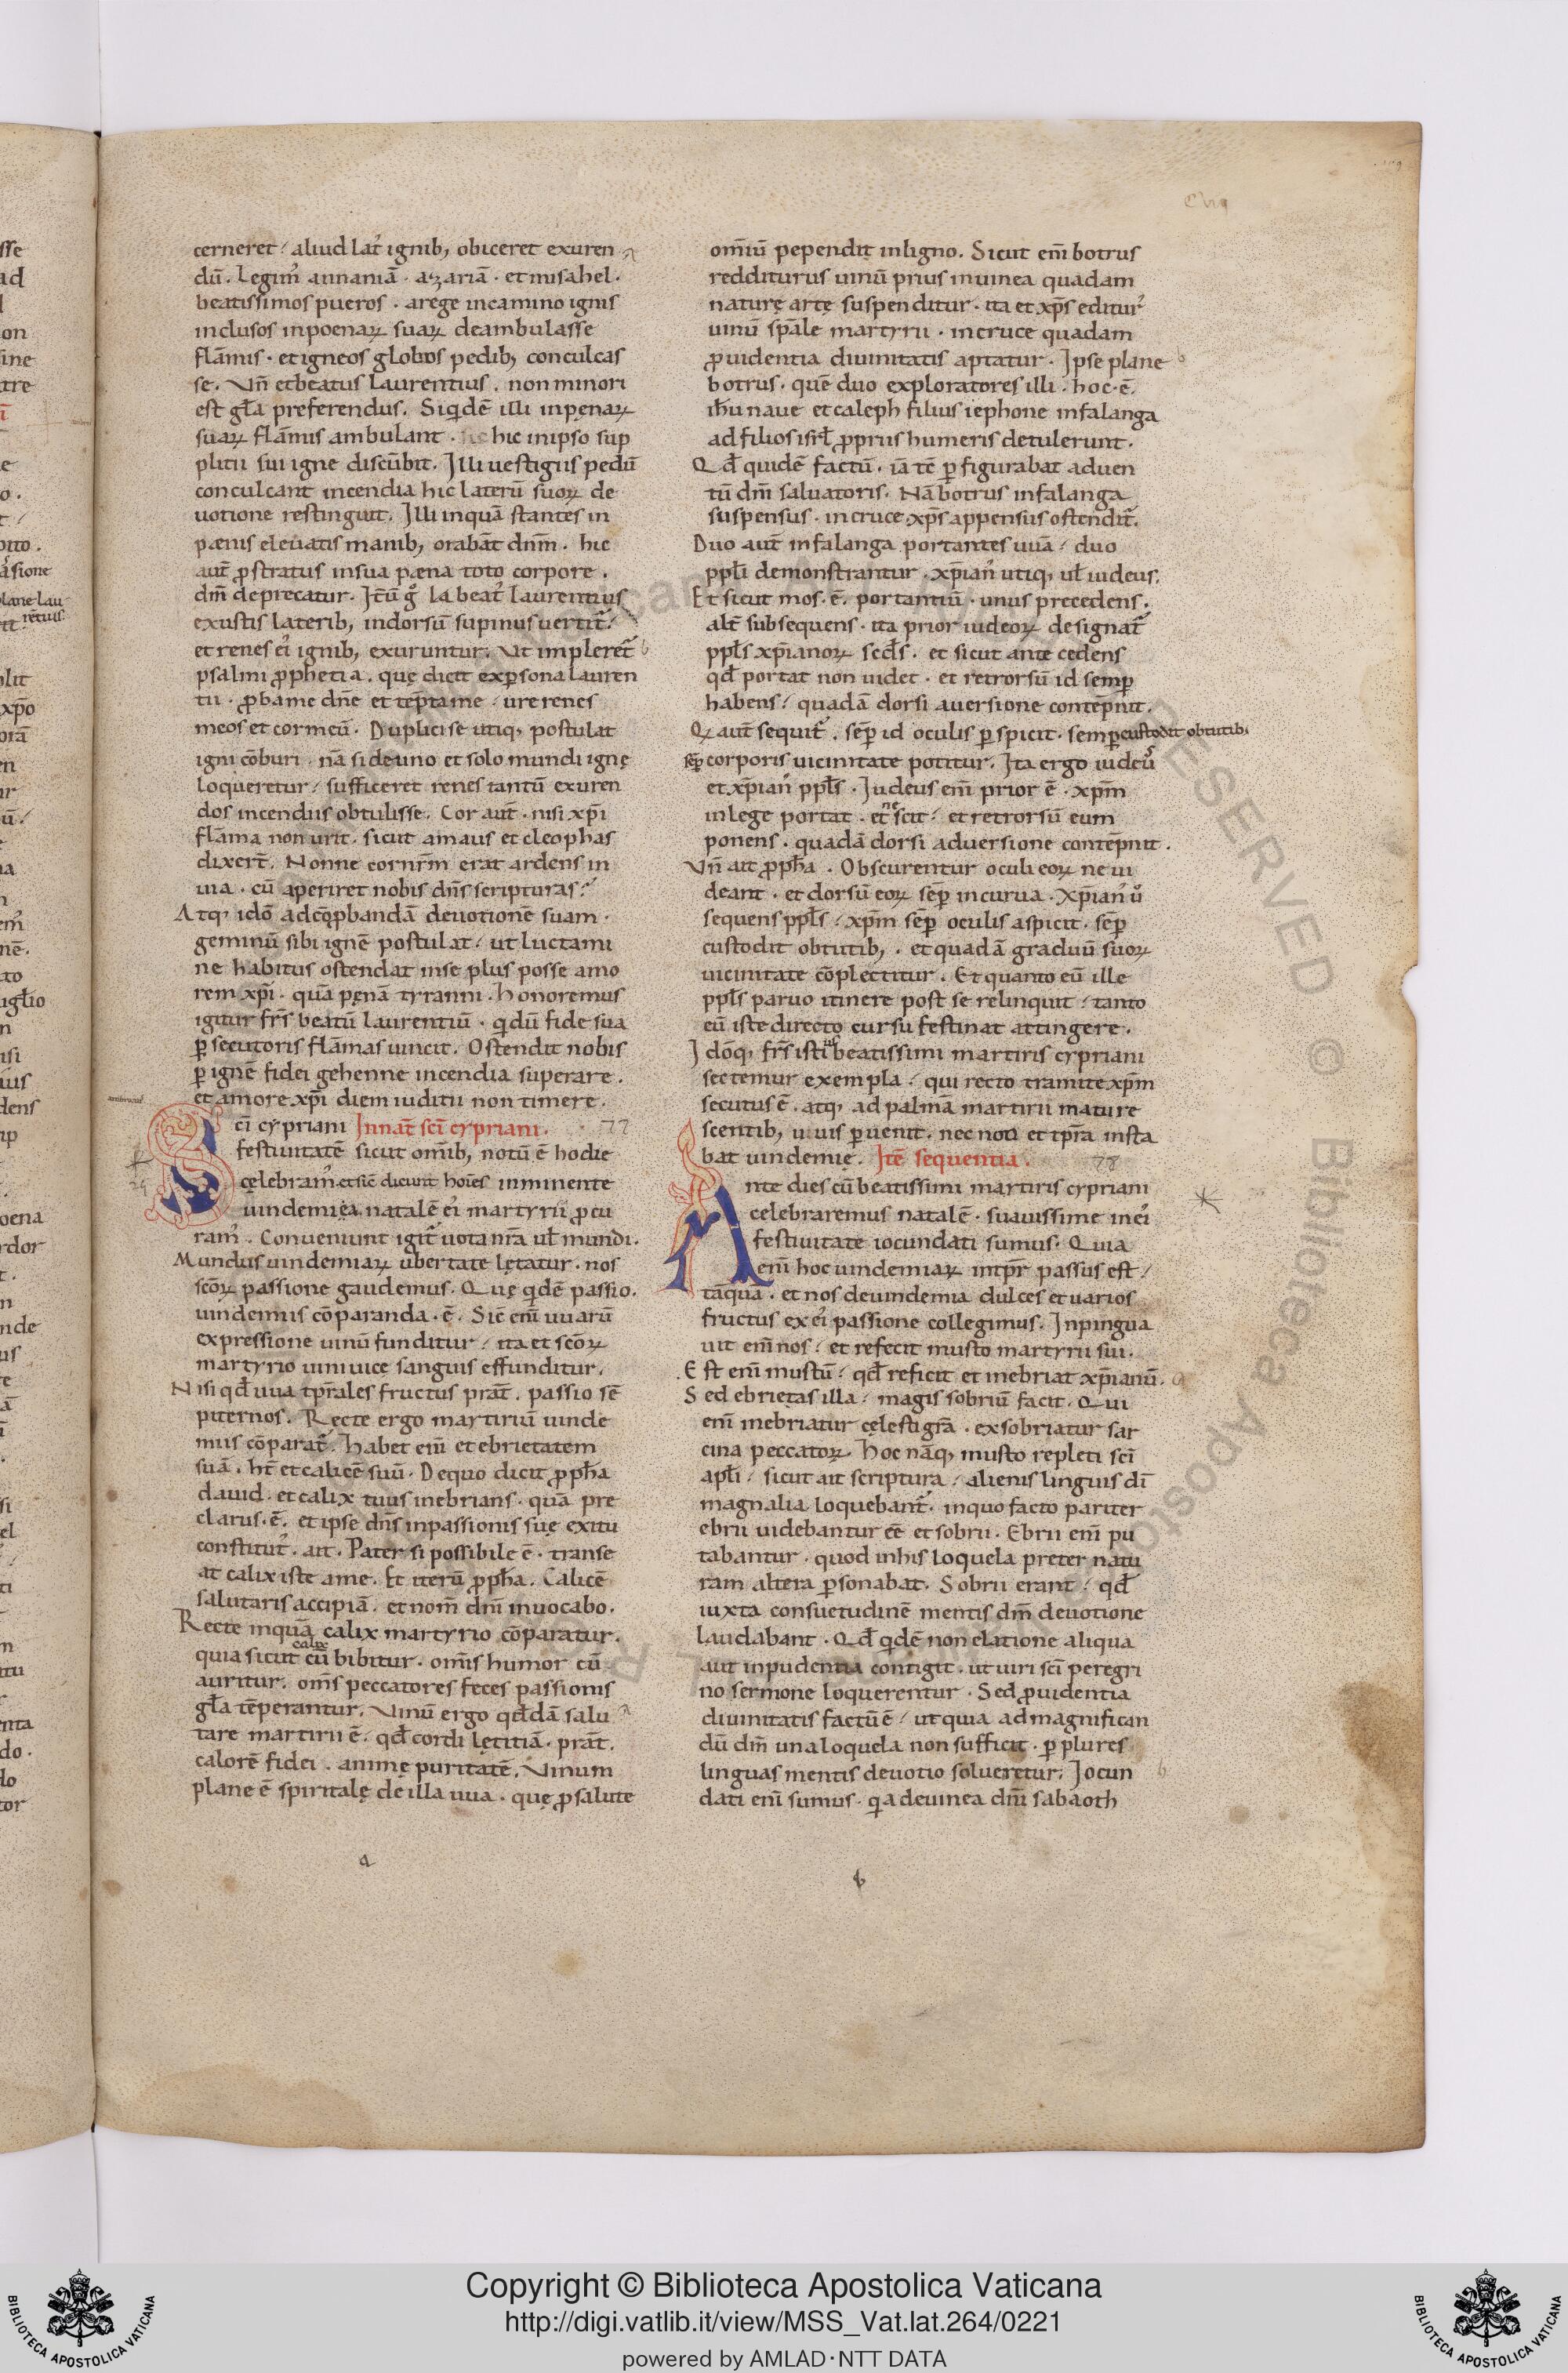 cerneret / aliud lat᷒ ignib; obiceret exuren
dū. Legim᷒ annaniā · azariā · et misahel·
beatissimos pueros · arege incamino ignis
inclusos inpoenaꝝ suaꝝ deambulasse
flāmis · et igneos globos pedib; conculcas
se. Vn̄ etbeatus laurentius. non minori
est gl̄a preferendus. Siqdē illi inpęnaꝝ
suaꝝ flāmis ambulant · hic inipso sup
plitii sui igne discūbit. Illi uestigiis pedū
conculcant incendia hic laterū suoꝝ de
uotione restinguit. Illi inquā stantes in
pænis eleuatis manib; orabāt dn̄m. hic
aut̄ ꝓstratus insua pæna toto corpore.
dm̄ deprecatur. Itēū g̊ la beat᷒ laurentius
exustis laterib; indorsū supinus uertit᷑
et renes ei᷒ ignib; exuruntur. Vt impleret᷑
psalmi ꝓphetia. quę dicit exꝑsona lauren
tii · ꝓbame dn̄e et tēptame / urerenes
meos et cormeū. Duplicise utiq; postulat
igni cōburi · nā sideuno et solo mundi ignę
loqueretur / sufficeret renes tantū exuren
dos incendiis obtulisse. Cor aut̄ · nisi xp̄i
flāma non urit · sicut amaus et cleophas
dixert̄. Nonne cornr̄m erat ardens in
uia · cū aperiret nobis dn̄s scripturas?
Atq; idō adcōꝓbandā deuotionē suam·
geminū sibi ignē postulat / ut luctami
ne habitus ostendat inse plus posse amo
rem xp̄i · quā pęnā tyranni. honoremus
igitur frs̄ beatū laurentiū · qdū fide sua
ꝑsecutoris flāmas uincit. Ostendit nobis
ꝑ ignē fidei gehenne incendia superare.
et amore xp̄i diem iuditii non timere.
Sc̄i cypriani Innat̄ sc̄i cypriani. 77
festiuitatē sicut om̄ib; notū ē hodie
cęlebram᷒. et siē dicunt hoīes inminente
uindemięa natalē ei᷒ martyrii ꝓcu
ram᷒. Conueniunt igit᷑ uota nr̄a ul̄ mundi.
Mundus uindemiaꝝ ubertate lętatur · nos
sc̄oꝝ passione gaudemus. Quę qdē passio.
uindemiis cōparanda · ē. Sic̄ em̄ uuarū
expressione uinū funditur / ita et sc̄oꝝ
martyrio uini uice sanguis effunditur.
Nisi qd̄ uua tp̄rales fructus prāt. passio sē
piternos. Recte ergo martiriū uinde
miis cōparat᷑. habet em̄ et ebrietatem
suā. ht̄ et calicē suū. Dequo dicit ꝓph̄a
dauid · et calix tuus inebrians · quā pre
clarus·ē. et ipse dn̄s inpassionis suę exitu
constitut᷒. ait. Pater si possibile ē · transe
at calix iste ame. Et iterū ꝓph̄a. Calicē
salutaris accipiā. et nom̄ dm̄ inuocabo.
Recte inquā calix martyrio cōparatur.
calix
quia sicut cū bibitur. om̄is humor cū
auritur. om̄s peccatores feces passionis
gl̄a tēperantur. Vinū ergo qd̄dā salu
tare martirii ē. qd̄ cordi lętitiā · prāt.
calorē fidei. animę puritatē. Vinum
plane ē spiritalę de illa uua · quę ꝓ salute
a
om̄iū pependit inligno. Sicut em̄ botrus
redditurus uinū prius inuinea quadam
naturę artę suspenditur · ita et xp̄s editur᷒
uinū sp̄ale martyrii · incruce quadam
ꝓuidentia diuinitatis aptatur. Ipse plane
botrus · quē duo exploratores illi · hoc·ē.
ih̄u naue et caleph filius iephone infalanga
ad filios isrl̄ ꝓpriis humeris detulerunt.
Qd̄ quidē factū · iā tē ꝑfigurabat aduen
tū dm̄ saluatoris. Nā botrus infalanga
suspensus · in cruce xp̄s appensus ostendit᷑.
Duo aut̄ infalanga portantes uuā / duo
ppl̄i demonstrantur. xp̄ian᷒ utiq; ul̄ iudeus.
Et sicut mos·ē. portantiū · unus precedens.
alt̄ subsequens · ita prior iudeoꝝ designat᷑
ppl̄s xp̄ianoꝝ scd̄s · et sicut ante cedens
qd̄ portat non uidet · et retrorsū id semꝑ
habens / quadā dorsi auersione contēpnit.
Qꝝ aut̄ sequit᷑. seꝑ id oculis ꝑspicit · semꝑcustodit obtutib;
seꝑ corporis uicinitate potitur. Ita ergo iudeu᷒
et xp̄ian᷒ ppl̄s · Iudeus em̄ prior ē · xp̄m
inlege portat · et nescit / et retrorsū eum
ponens. quadā dorsi aduersione contēpnit.
Vn̄ ait ꝓph̄a. Obscurentur oculi eoꝝ ne ui
deant · et dorsū eoꝝ seꝑ incurua. Xp̄ian᷒ ů
sequens ppl̄s / xp̄m seꝑ oculis aspicit. seꝑ
custodit obtutib; · et quadā graduū suoꝝ
uicinitate cōplectitur. Et quanto eū ille
ppl̄s paruo itinere post se relinquit / tanto
eū iste directo cursu festinat attingere.
Idōq; frs̄ isti beatissimi martiris cypriani
sectemur exempla / qui recto tramite xp̄m
secutus ē. atq; ad palmā martirii mature
scentib; uuis ꝑuenit. nec non et tp̄ra insta
bat uindemię. Itē sequentia. 78
Ante dies cū beatissimi martiris cypriani
celebraremus natalē · suauissime in ei᷒
festiuitate iocundati sumus. Quia
em̄ hoc uindemiaꝝ intp̄r passus est /
tāquā. et nos deuindemia dulces et uarios
fructus ex ei᷒ passione collegimus. Inpingua
uit em̄ nos / et refecit musto martyrii sui.
Est em̄ mustū / qd̄ reficit et inebriat xp̄ianū.
Sed ebrietas illa / magis sobriū facit. Qui
em̄ inebriatur cęlesti gr̄a · exsobriatur sar
cina peccatoꝝ. hoc nāq; musto repleti sc̄i
apl̄i / sicut ait scriptura / alienis linguis dī
magnalia loquebant᷑. inquo facto pariter
ebrii uidebantur eē et sobrii. Ebrii em̄ pu
tabantur. quod inhis loquela preter natu
ram altera ꝑsonabat. Sobrii erant / qd̄
iuxta consuetudinē mentis dm̄ deuotione
laudabant. Qd̄ qdē non elatione aliqua
aut inpudentia contigit. ut uiri sc̄i peregri
no sermone loquerentur. Sed ꝓuidentia
diuinitatis factū ē / ut quia admagnifican
dū dm̄ una loquela non sufficit · ꝑ plures
linguas mentis deuotio solueretur. Iocun
dati em̄ sumus. qa deuinea dm̄ sabaoth
b
Copyright © Biblioteca Apostolica Vaticana
http://digi.vatlib.it/view/MSS_Vat.lat.264/0221
powered by AMLAD·NTT DATA
BIBLIOTECA APOSTOLICA VATICANA
BIBLIOTECA APOSTOLICA VATICANA